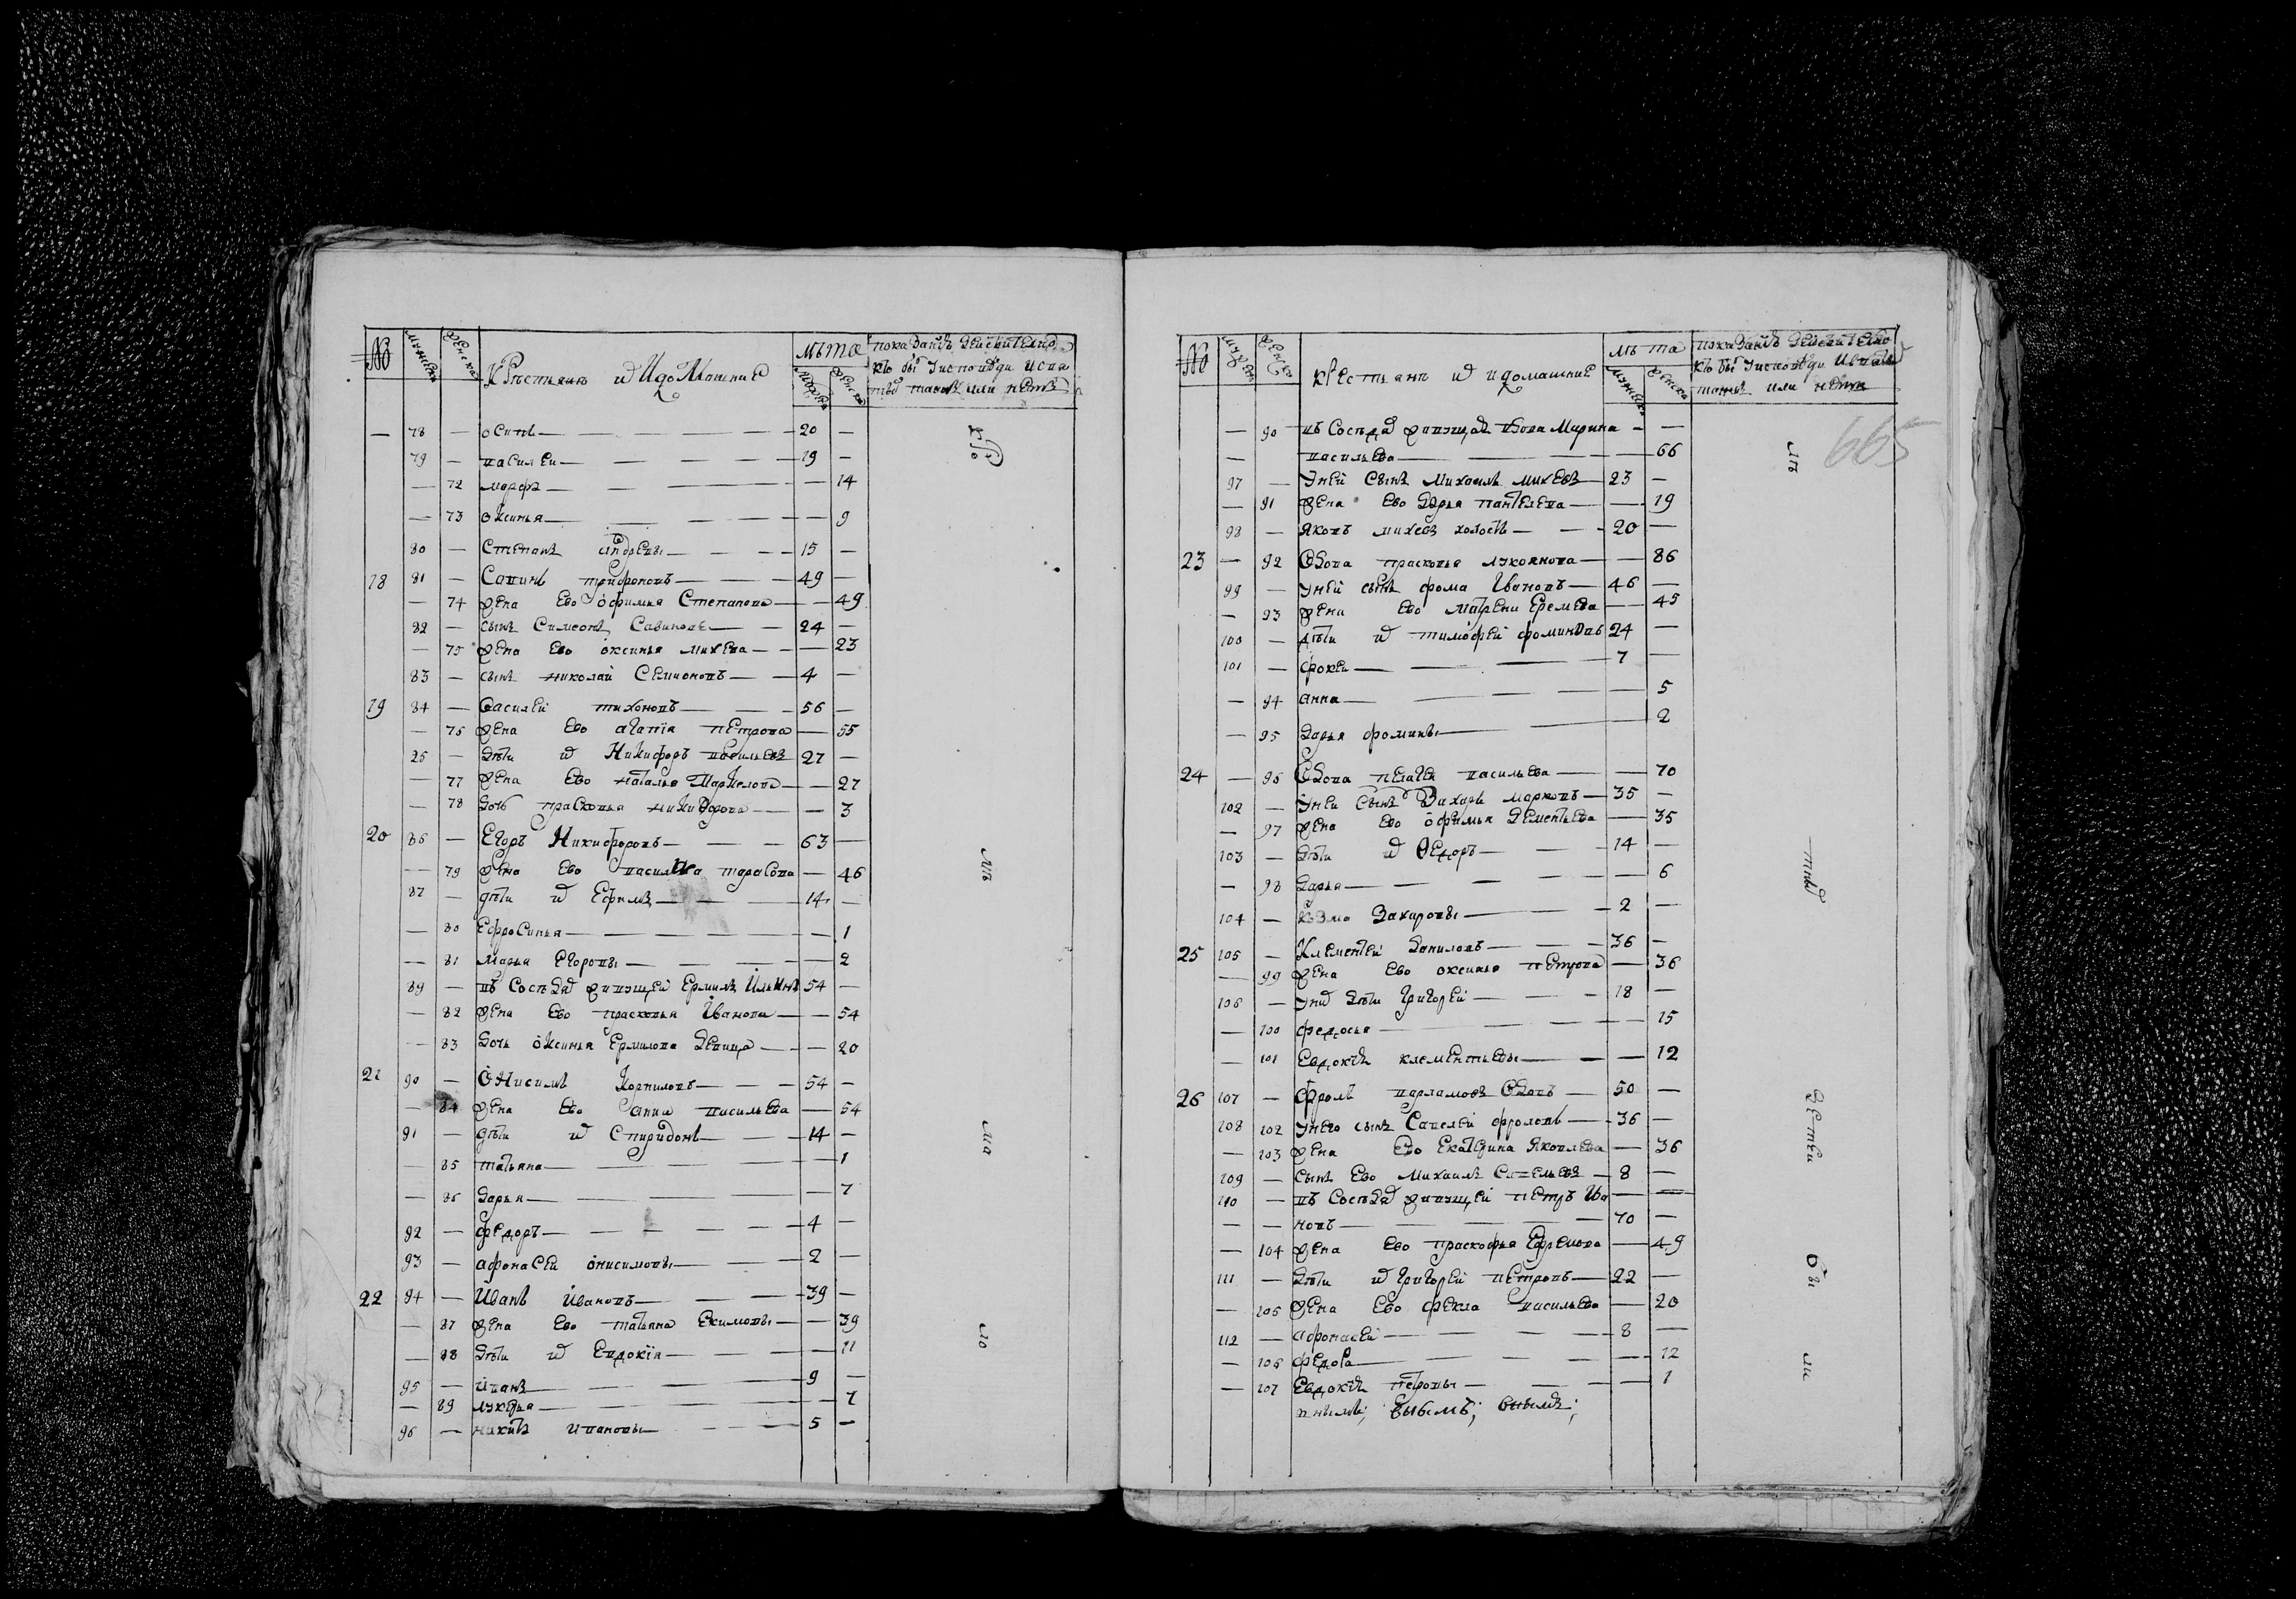 № мужеска женска крестьянъ и ихъ домашние лѣта мужеска женска показаніе действително
кто былъ у исповѣди и свя
таго таинъ или нетъ
— 78 — осипъ — 20 —
79 — василеи — 19 —
— 72 марфа — — 14
— 73 оксинья — — 9
80 — степанъ андреевы — 15 —
18 81 — савинъ трифоновъ — 49 —
— 74 жена ево офимья степанова — — 49
82 — сынъ симеонъ савиновъ — 24 —
— 75 жена ево оксинья михева — — 23
83 — сынъ николай семионовъ — 4 —
19 84 — василей тихоновъ — 56 —
— 76 жена ево агапiа петрова — 55
85 — дѣти и никифоръ васильевъ 27 —
— 77 жена ево наталья маркелова — — 27
— 78 дочь прасковья никифорова — — 3
20 86 — егоръ никифоровъ — 63 —
— 79 жена ево василиса тарасова — 46
87 — дѣти и ефимъ — 14 —
— 80 ефросинья — — 1
— 81 марья егоровы — — 2
89 — въ соседа живущеи ермилъ ильинъ 54 —
— 82 жена ево прасковья иванова — — 54
— 83 дочь оксинья ермилова девица — — 20
21 90 — онисимъ корниловъ — 54 —
— 84 жена ево анна васильева — 54
91 — дѣти и спиридонъ — 14 —
— 85 татьяна — — 1
— 86 дарья — — 7
92 — федоръ — 4 —
93 — афонасеи онисимовы — 2 —
22 94 — иванъ ивановъ — 39 —
— 87 жена ево татьяна екимовы — — 39
— 88 дѣти и евдокiя — — 11
95 — иванъ — 9 —
— 89 лукерья — — 7
96 — никита ивановы — 5 —
№ мужеска женска крестьянъ и ихъ домашние лѣта мужеска женска показаніе действително
кто былъ у исповѣди и святаго
таинъ или нетъ
665
— 90 въ соседа живущая вдова марина — —
— васильева — — 66
97 — у ней сынъ михаилъ михевъ — 23 —
— 91 жена ево дарья пантелева — — 19
98 — яковъ михевъ холостъ — 20 —
23 — 92 вдова прасковья лукоянова — — 86
99 — у ней сынъ фома ивановъ — 46 —
— 93 жена ево матрена еремева — — 45
100 — дѣти и тимофей фоминовъ 24 —
101 — фокеи — 7 —
— 94 анна — — 5
— 95 дарья фомины — — 2
24 — 96 вдова пелагея васильева — — 70
102 — у неи сынъ захаръ марковъ — 35 —
— 97 жена ево офимья дементьева — 35
103 — дѣти и федоръ — 14 —
— 98 дарья — — 6
104 — козма захаровы — 2 —
25 105 — клементей даниловъ — 36 —
— 99 жена ево оксинья петрова — 36
106 — у них дѣти григорей — 18 —
— 100 федосья — — 15
— 101 евдокия клементьевы — — 12
26 107 — фролъ варламовъ вдовъ — 50 —
108 102 у него сынъ савелей фроловъ — 36 —
— 103 жена ево екатерина яковлева — 36
109 — сынъ ево михаилъ савельевъ — 8 —
110 — въ соседа живущей петръ ива — —
— — новъ — 70 —
— 104 жена ево прасковья ефремова — 49
111 — дѣти и григорей петровъ — 22 —
— 105 жена ево фекла васильева — 20
112 — афонасей — 8 —
— 106 федора — — 12
— 107 евдокия петровы — — 1